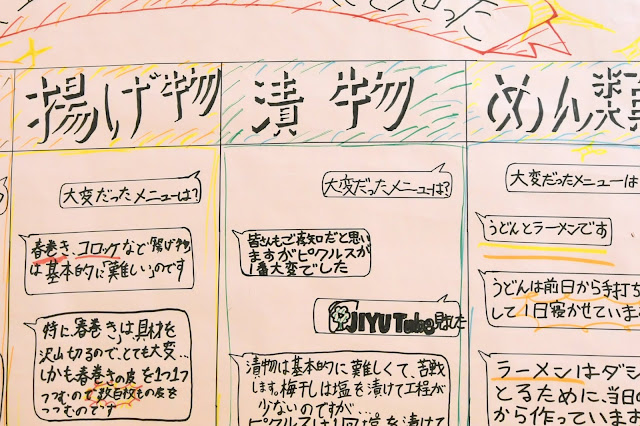 揚げ物
大変だったメニューは?
春巻き、コロッケなど「揚げ物」
は基本的に「難しい」のです
特に「春巻き」は具材を
沢山切るので、とても大変…
しかも春巻きの皮を1つ1つ
つつむので数百枚もの皮を
つつむのです
漬物
大変だったメニューは?
皆さんもご存知だと思い
ますがピクルスが
1番大変でした
JIYU Tube見ました
漬物は基本的に難しくて、苦戦
します。梅干しは塩を漬けて工程が
少ないのですが…
ピクルスは1回塩を漬けて
めん類
大変だったメニューは
うどんとラーメンです
うどんは前日から手打ち
して1日寝かせています
ラーメンはダシ
とるために、当日の
から作っています